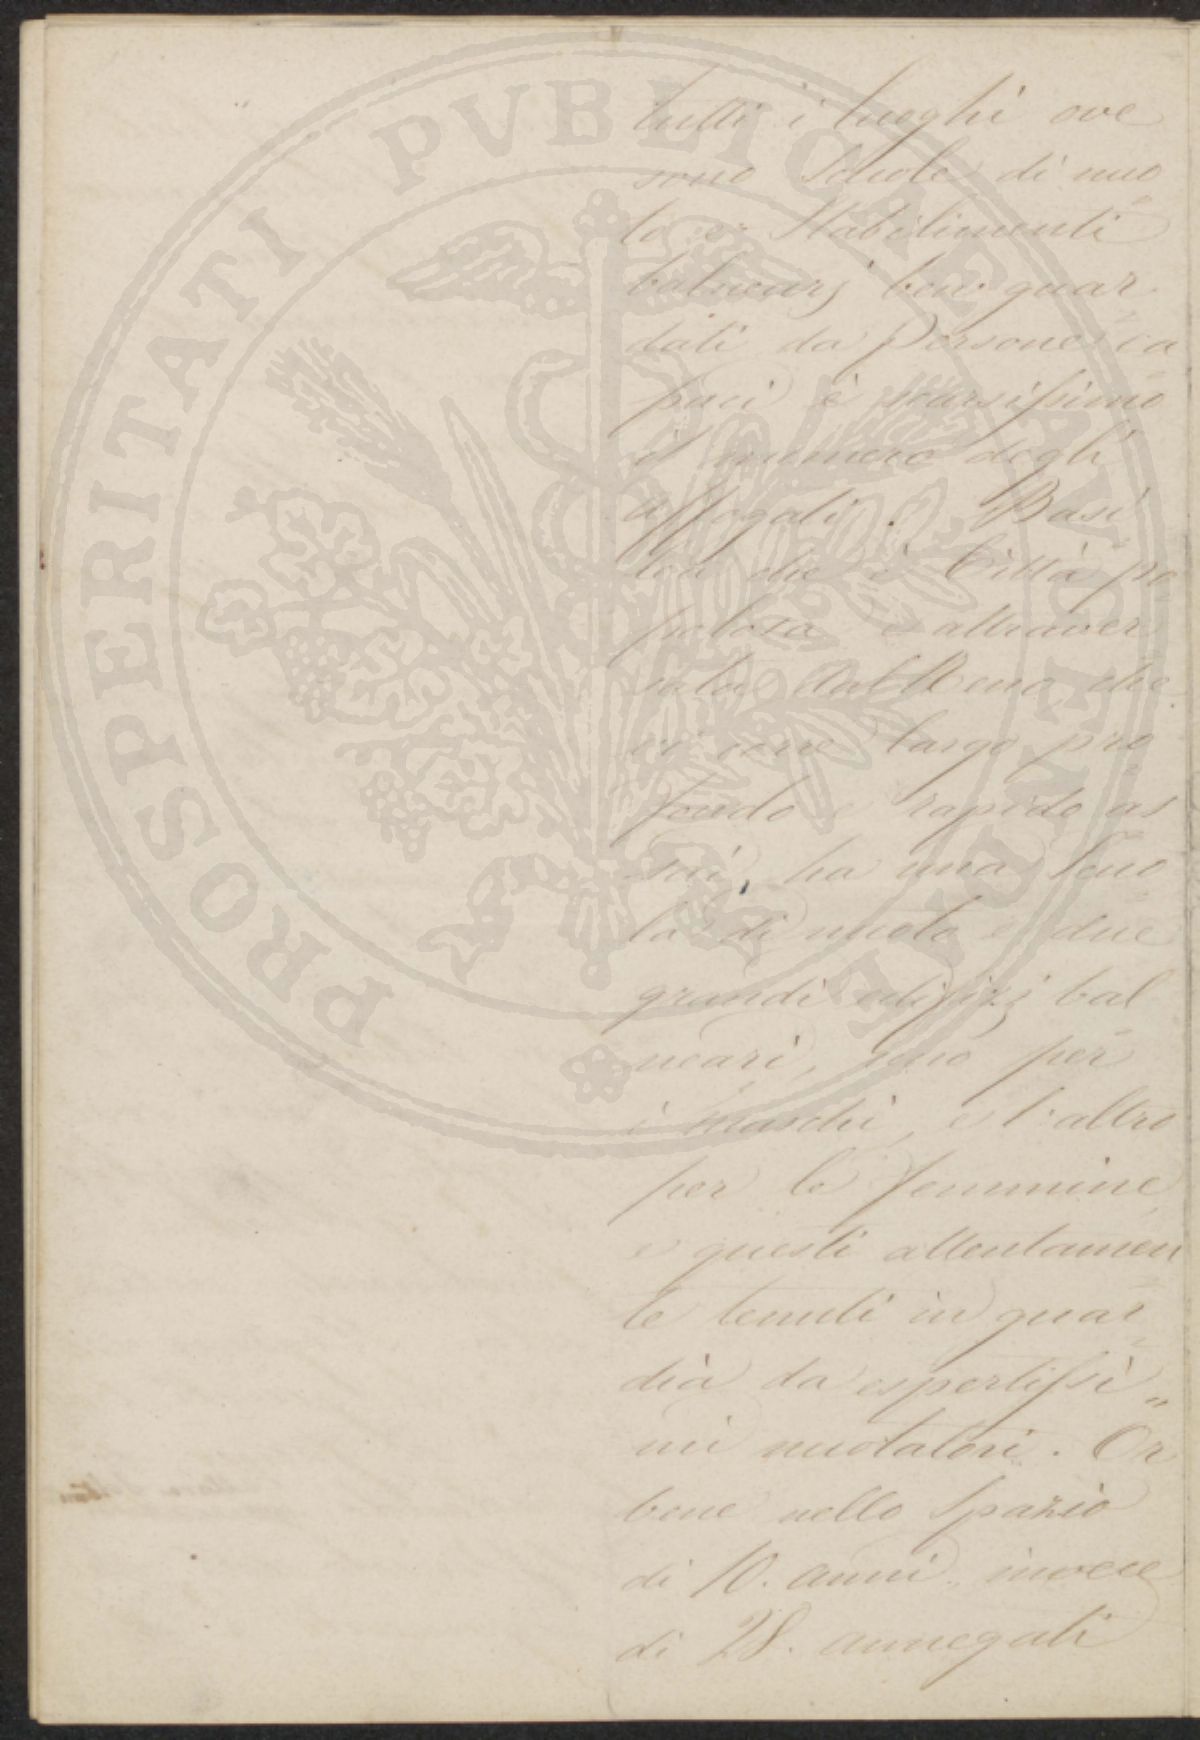 tutti i luoghi ove
sono Scuole di nuo
to e Stabilimenti
balnearj ben guar
dati da persone ca
paci è scarsissimo
il numero degli
affogati. Basi
lea che è Città po
polosa e attraver
sata dal Reno che
vi corre largo pro
fondo e rapido as
sai, ha una Scuo
la di nuoto e due
grandi edifizj bal
neari, uno per
i maschi, e l'altro
per le femmine
e questi attentamen
te tenuti in guar
dia da espertissi
mi nuotatori. Or
bene nello spazio
di 10. anni invece
di 28. annegati
PROSPERITATI PVBLICAE AVGENDAE